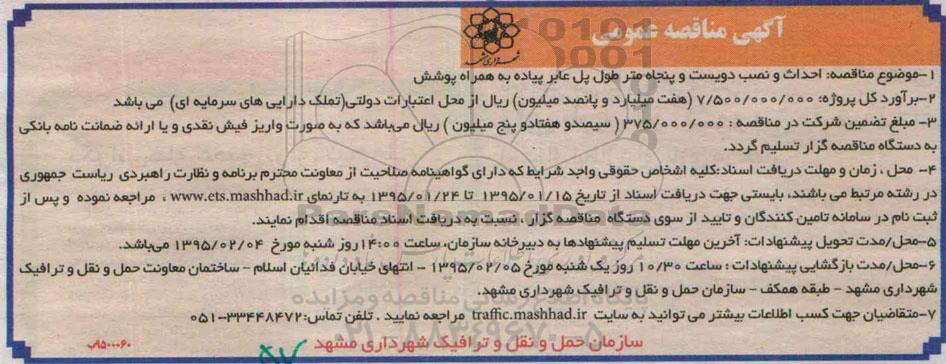 آگهی مناقصه عمومی
شهرداری مشهد
۱-موضوع مناقصه: احداث و نصب دویست و پنجاه متر طول پل عابر پیاده به همراه پوشش
۲-برآورد کل پروژه: ۷/۵۰۰/۰۰۰/۰۰۰ (هفت میلیارد و پانصد میلیون) ریال از محل اعتبارات دولتی(تملک دارایی های سرمایه ای) می باشد
۳- مبلغ تضمین شرکت در مناقصه : ۳۷۵/۰۰۰/۰۰۰ ( سیصدو هفتادو پنج میلیون ) ریال می‌باشد که به صورت واریز فیش نقدی و یا ارائه ضمانت نامه بانکی
به دستگاه مناقصه گزار تسلیم گردد.
۴- محل ، زمان و مهلت دریافت اسناد:کلیه اشخاص حقوقی واجد شرایط که دارای گواهینامه صلاحیت از معاونت محترم برنامه و نظارت راهبردی ریاست جمهوری
در رشته مرتبط می باشند، بایستی جهت دریافت اسناد از تاریخ ۱۳۹۵/۰۱/۱۵ تا ۱۳۹۵/۰۱/۲۴ به تارنمای www.ets.mashhad.ir ، مراجعه نموده و پس از
ثبت نام در سامانه تامین کنندگان و تایید از سوی دستگاه مناقصه گزار ، نسبت به دریافت اسناد مناقصه اقدام نمایند.
۵-محل/مدت تحویل پیشنهادات: آخرین مهلت تسلیم پیشنهادها به دبیرخانه سازمان، ساعت ۱۴:۰۰ روز شنبه مورخ ۱۳۹۵/۰۲/۰۴ می‌باشد.
۶-محل/مدت بازگشایی پیشنهادات : ساعت ۱۰/۳۰ روز یک شنبه مورخ ۱۳۹۵/۰۲/۰۵ - انتهای خیابان فدائیان اسلام - ساختمان معاونت حمل و نقل و ترافیک
شهرداری مشهد - طبقه همکف - سازمان حمل و نقل و ترافیک شهرداری مشهد.
۷-متقاضیان جهت کسب اطلاعات بیشتر می توانید به سایت traffic.mashhad.ir مراجعه نمایید . تلفن تماس:۳۳۴۴۸۴۷۲-۰۵۱
سازمان حمل و نقل و ترافیک شهرداری مشهد
۹۵۰۰۰۶۰ب